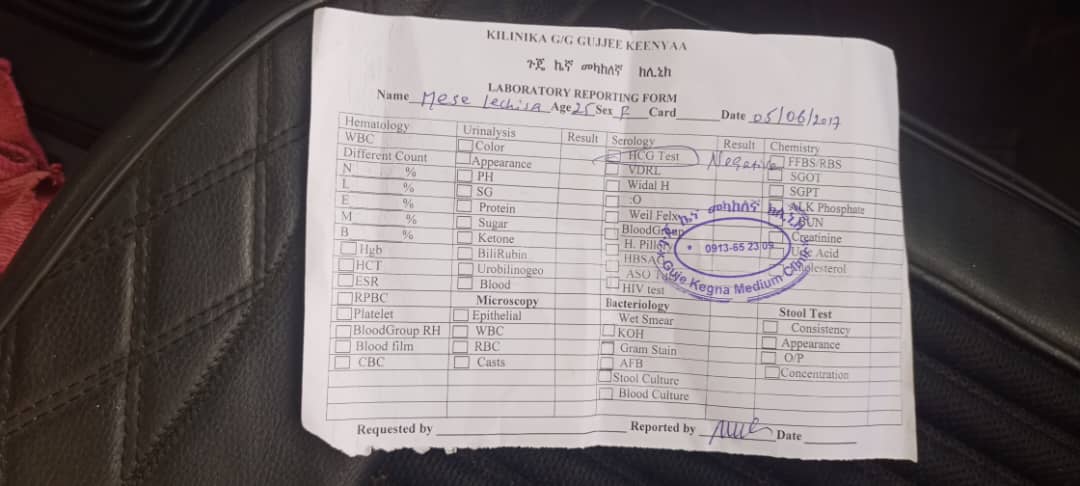 KILINIKA G/G GUJJEE KEENYAA
ጉጂ ኬኛ መካከለኛ ክሊኒክ
LABORATORY REPORTING FORM
Name Mese Lechisa Age 25 Sex F Card Date 05/06/2017
Hematology Urinalysis Result Serology Result Chemistry
WBC Color HCG Test Negative FFBS/RBS
Different Count Appearance VDRL SGOT
N % PH Widal H SGPT
L % SG :O ALK Phosphate
E % Protein Weil Felx BUN
M % Sugar BloodGroup Creatinine
B % Ketone H. Pillory Uric Acid
Hgb BiliRubin HBSA Cholesterol
HCT Urobilinogeo ASO
ESR Blood HIV test
RPBC Microscopy Bacteriology Stool Test
Platelet Epithelial Wet Smear Consistency
BloodGroup RH WBC KOH Appearance
Blood film RBC Gram Stain O/P
CBC Casts AFB Concentration
Stool Culture
Blood Culture
Requested by Reported by Date
ኬኛ መካከለኛ ክሊኒክ
0913-65 23 09
Guje Kegna Medium Clinic